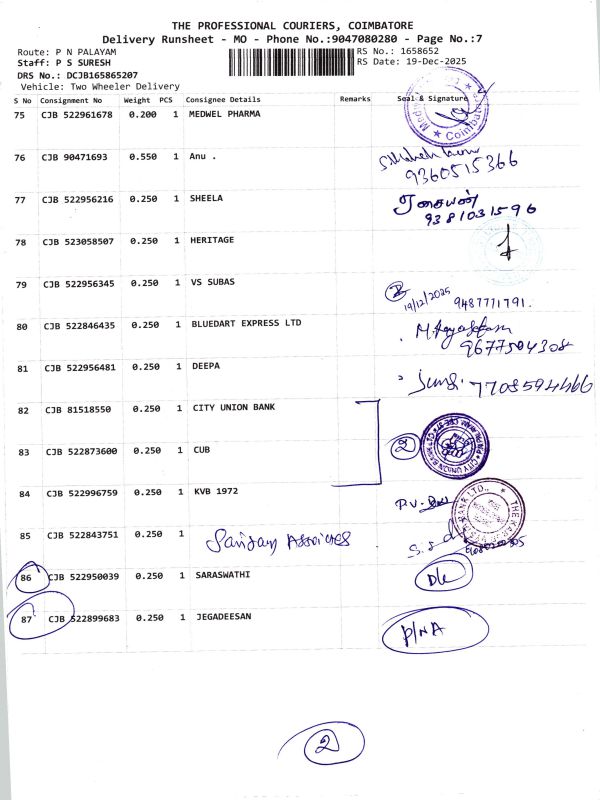 THE PROFESSIONAL COURIERS, COIMBATORE
Delivery Runsheet - MO - Phone No.:9047080280 - Page No.:7
Route: P N PALAYAM
RS No.: 1658652
Staff: P S SURESH
RS Date: 19-Dec-2025
DRS No.: DCJB165865207
Vehicle: Two Wheeler Delivery
S No Consignment No Weight PCS Consignee Details Remarks Seal & Signature
75 CJB 522961678 0.200 1 MEDWEL PHARMA
Coimbatore
76 CJB 90471693 0.550 1 Anu .
9360515366
77 CJB 522956216 0.250 1 SHEELA
9381031596
78 CJB 523058507 0.250 1 HERITAGE
79 CJB 522956345 0.250 1 VS SUBAS
19/12/2025 9487771791.
80 CJB 522846435 0.250 1 BLUEDART EXPRESS LTD
9677504308
81 CJB 522956481 0.250 1 DEEPA
7708594466
82 CJB 81518550 0.250 1 CITY UNION BANK
83 CJB 522873600 0.250 1 CUB 2
CITY UNION BANK LTD
84 CJB 522996759 0.250 1 KVB 1972
P.V.
BANK LTD.,
85 CJB 522843751 0.250 1
86 CJB 522950039 0.250 1 SARASWATHI D/L
87 CJB 522899683 0.250 1 JEGADEESAN P/NA
2